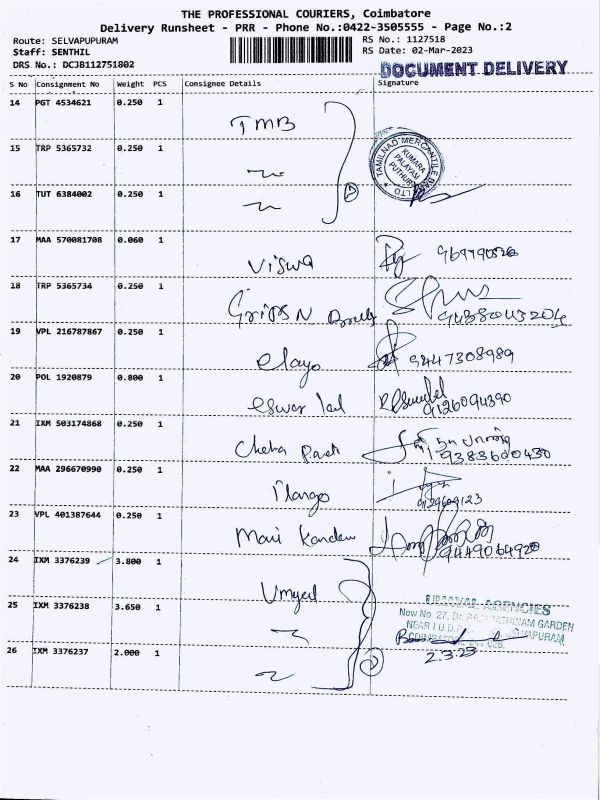 THE PROFESSIONAL COURIERS, Coimbatore
Delivery Runsheet - PRR - Phone No.:0422-3505555 - Page No.:2
Route: SELVAPUPURAM
RS No.: 1127518
Staff: SENTHIL
RS Date: 02-Mar-2023
DRS No.: DCJB112751802
DOCUMENT DELIVERY
S No Consignment No Weight PCS Consignee Details Signature
14 PGT 4534621 0.250 1
TMB
15 TRP 5365732 0.250 1
TAMILNAD MERCANTILE BANK LTD
KUMARA
PALAYAM
PUTHUR
16 TUT 6384002 0.250 1
17 MAA 570081708 0.060 1
Viswa
18 TRP 5365734 0.250 1
19 VPL 216787867 0.250 1
elayo 9447308989
20 POL 1920879 0.800 1
eswar lal 9126094390
21 IXM 503174868 0.250 1
9383600430
22 MAA 296670990 0.250 1
Ilango
23 VPL 401387644 0.250 1
Mari Kandan 9449064920
24 IXM 3376239 3.800 1
Umyal
25 IXM 3376238 3.650 1
UMAYAL AGENCIES
New No. 27, Dr. RAJARATHINAM GARDEN
26 IXM 3376237 2.000 1
2.3.23